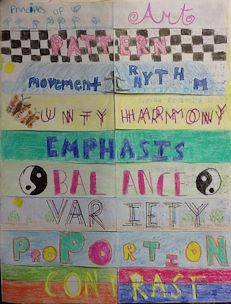 Principles of Art
PATTERN
movement RHYTHM
UNITY HARMONY
EMPHASIS
BALANCE
VARIETY
PROPORTION
CONTRAST